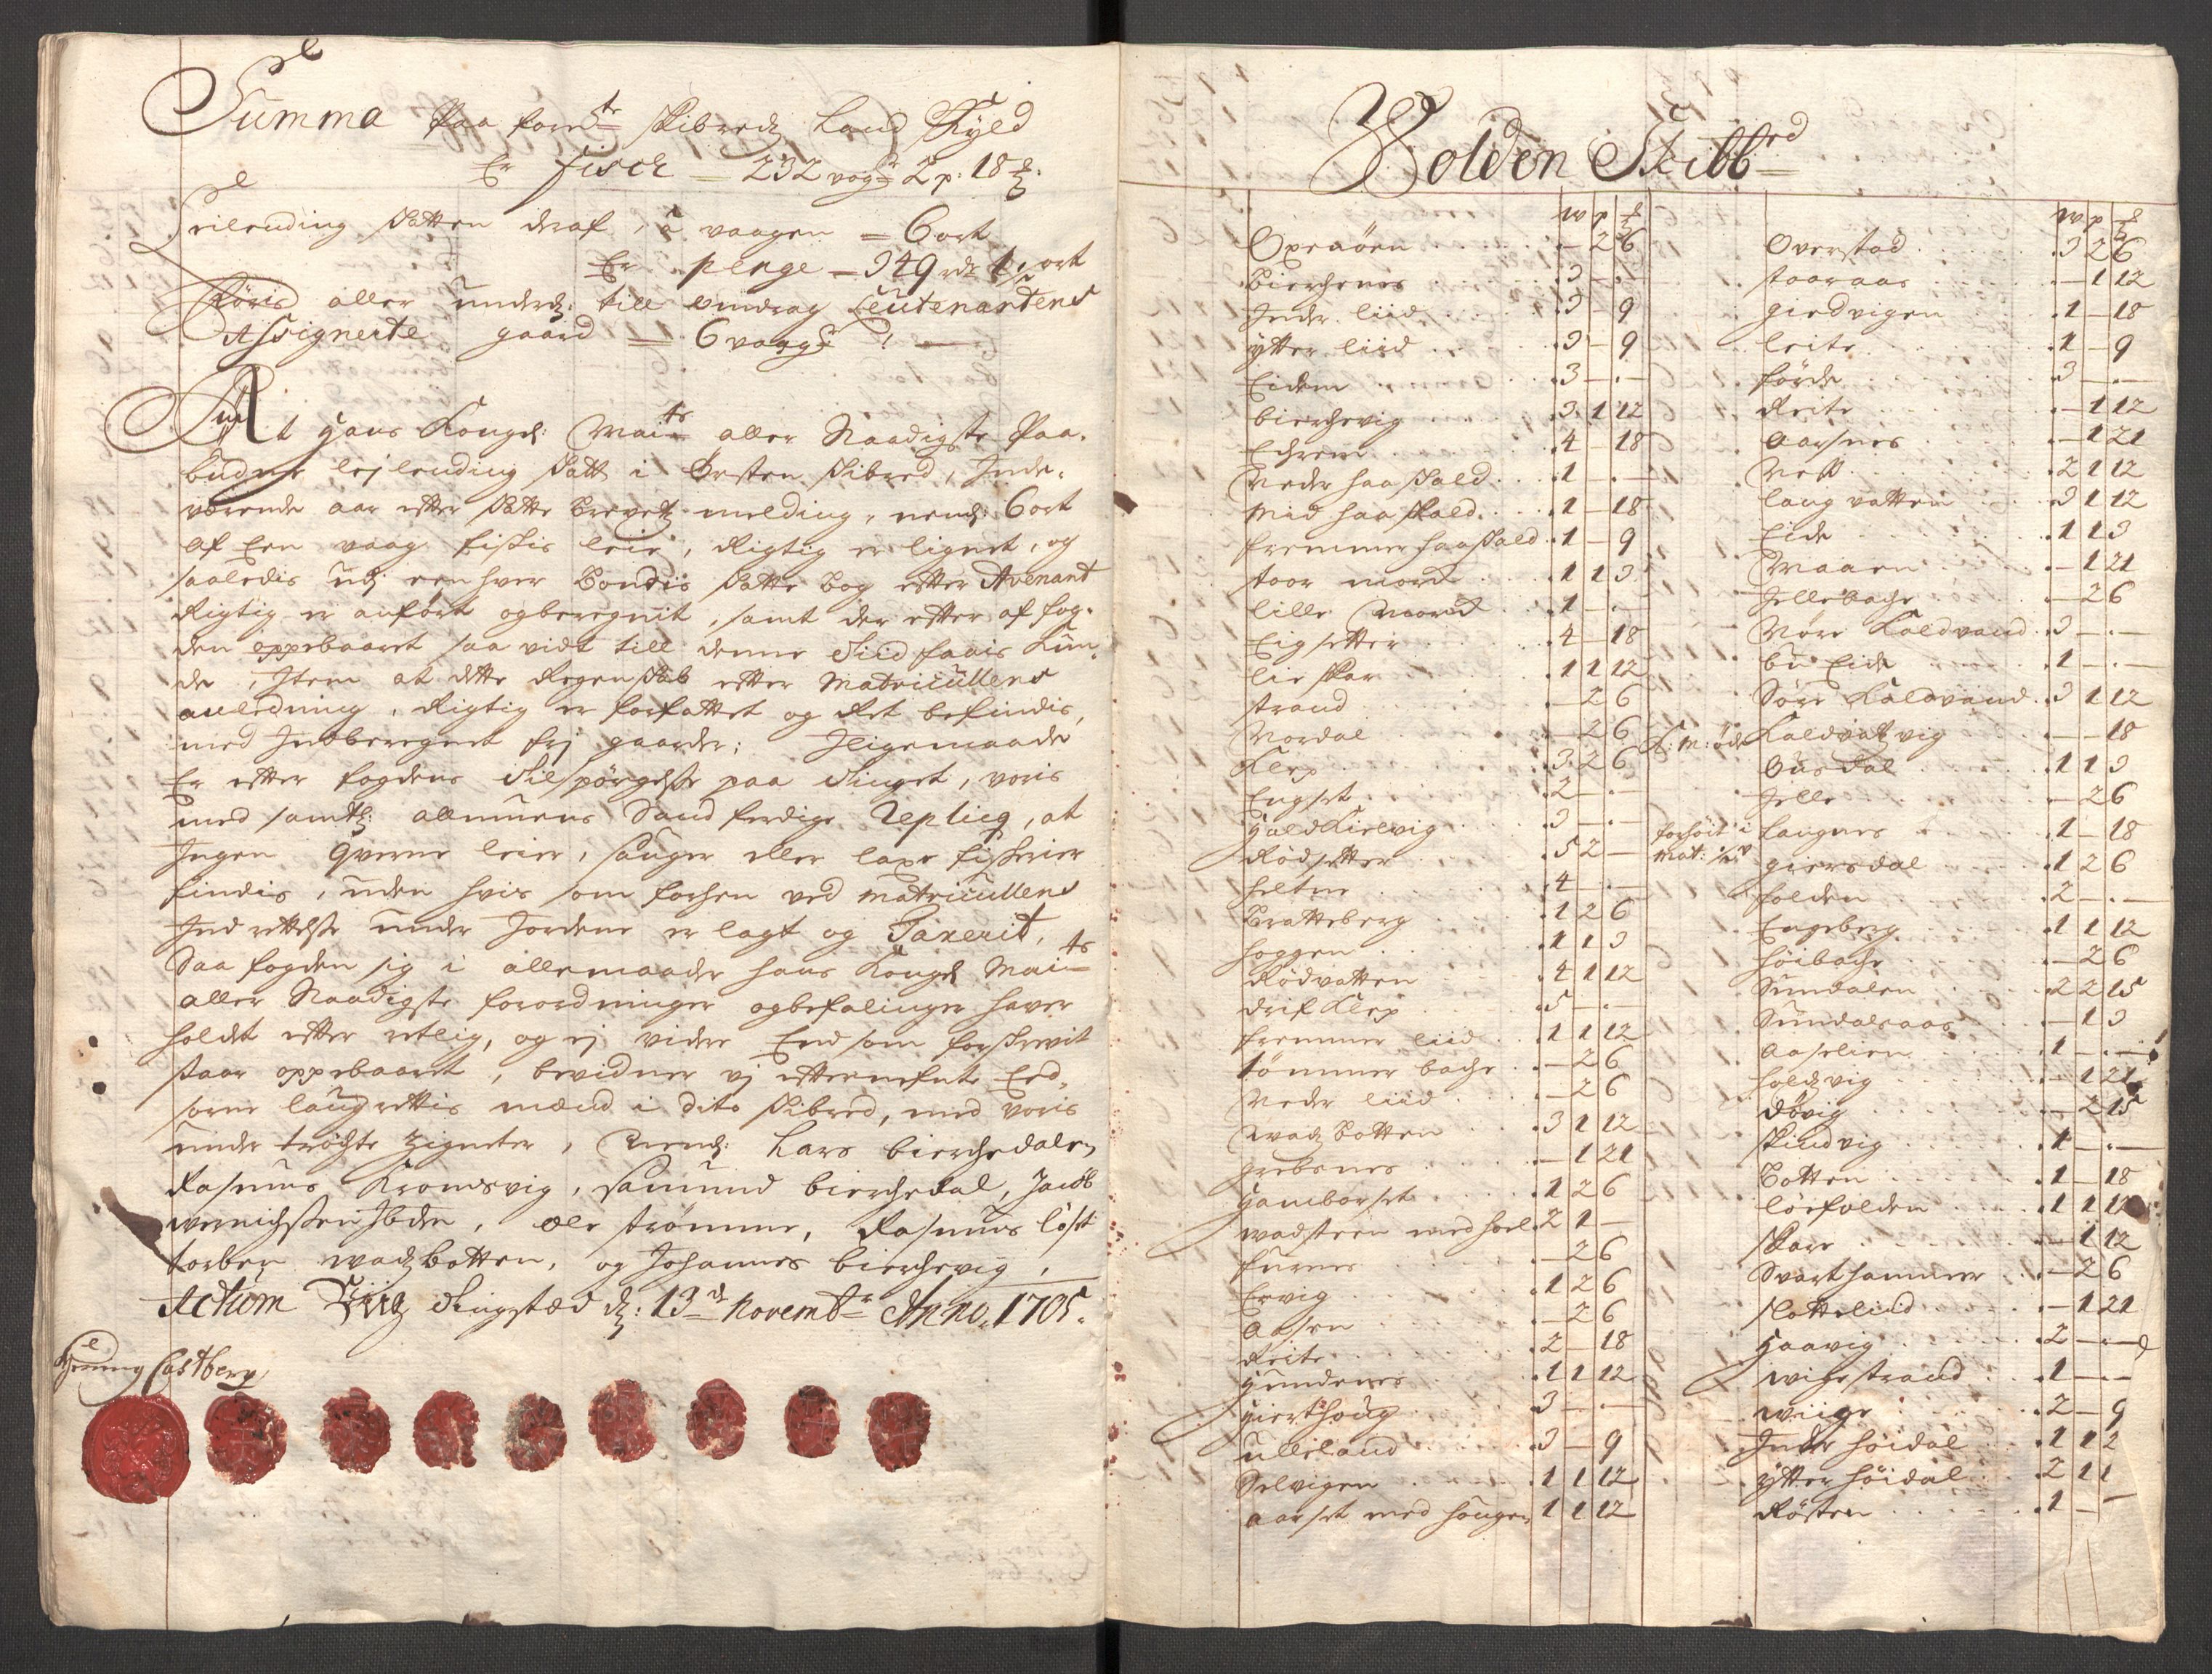 Summa Paa forn:te skibreds Land Skyld
Er fisch — 232 vog:r 2 p: 18 ℔.
leilending skatten deraf, à vaagen = 6 ort
Er penge — 349 rdr 1 ort
føris aller underd: till andrag Leutenantens
Assignerte gaard — 6 vaag:r
At Hans Kongl: Mai:ts aller Naadigste Paa-
budne leilending skatt i Ørsten skibred, Inde-
værende aar efter skatte brevets melding, nemb: 6 ort
af Een vaag fiskis leie, Rigtig er lignet, og
saaledis udj een hver Bondis skatte bog efter Avenant
Rigtig er anført og beregnit, samt der efter af fog-
den oppebaaret saa vidt till denne tiid faais kun-
de, Item at dette Regenskab efter Matricullens
anledning, Rigtig er forfattet og Ret befindis,
med Indberegnet frj gaarder; Iligemaade
Er efter fogdens tilspørgelse paa tinget, voris
med samtl: almuens Sandferdige Replicq, at
Ingen qverne leier, sauger eller laxe fisserier
findis, uden hvis som forhen ved matricullens
Indrettelse under Jordene er lagt og Taxerit,
Saa fogden sig i alle maader hans Kongl Mai:ts
aller Naadigste forordninger og befalinger haver
holdt efter retlig, og ej videre End som forskrevit
staar oppebaaret, bevidner vj efternefnte Eed-
sorne laugrettis mænd i dito skibred, med voris
under trøchte zigneter, Nemb: Lars bierchedalen
Rasmus Kromsvig, samund bierchedal, Jacob
wernichssen Ibdm, ole strømme, Rasmus løset
torber wadzbotten, og Johannes bierchevig,
Actum Tingstæd d: 13 novemb:r Anno 1705.
Henning Castberg
Wolden Skibb:rd
w p ℔
Oxeaøen — 2 6
bierchenes 3 — —
Inder liid 3 — 9
ytter liid 3 — 9
Eidem 3 — —
bierchevig 3 1 12
Echrem 4 — 18
Neder haaskald 1 — —
Mid haaskald 1 — 18
fremmer haaskald 1 — 9
stoor mord 1 1 3
lille moord 1 — —
Eigsetter 4 — 18
lieskar 1 1 12
strand — 2 6
Mordal — 2 6
Klep 3 2 6
Engset 2 — —
Haldkirevig 3 — —
Rødsetter 5 2 —
heltne 4 — —
Bratteberg 1 2 6
hoggen 1 1 3
Rødvatten 4 1 12
drifklep 5 — —
fremmer liid 1 1 12
tømmer bache — 2 6
Neder liid — 2 6
wadz botten 3 1 12
grebsnes — 1 21
Hamborset 1 2 6
wadsteen med hoel 2 1 —
furnes — 2 6
Ervig 1 2 6
aasen — 2 6
Reite 2 — 18
Hundenes 1 1 12
Hierthoug 3 — —
ulleland 3 — 9
Selvigen 1 1 12
aarset med hougen 1 1 12
w p ℔
Overstad 3 2 6
staaraas — 1 12
giedvigen 1 — 18
leite 1 — 9
førde 3 — —
Reite — 1 12
aarsnes — 1 21
Nest 2 1 12
lang vatten 3 1 12
Eide 1 1 3
Maaren — 1 21
hellebache — 2 6
Nøre Kaldvand 3 — —
bu Eide 1 — —
Søre Kaldvand 3 1 12
K: M: øde Kaldvatz vig — — 18
Ousdal 1 1 3
helle — 2 6
forhøit i mat: faugnes 1 — 18
giersdal 1 2 6
folden 2 — —
Engeberg 1 1 12
høibache — 2 6
Sundalen 2 2 15
Sundalsaas — 1 3
aaselien 1 — —
holdzvig — 1 21
døvig — 2 15
skindvig 1 — —
botten 1 — 18
løefolden 1 1 12
skare — 1 12
Svarthammer — 2 6
slottelid — 1 21
Haavig 2 — —
wichestrand 1 — —
wiige 2 — 9
Inder høidal 1 1 2
ytter høidal 2 1 1
Røsten 1 — —